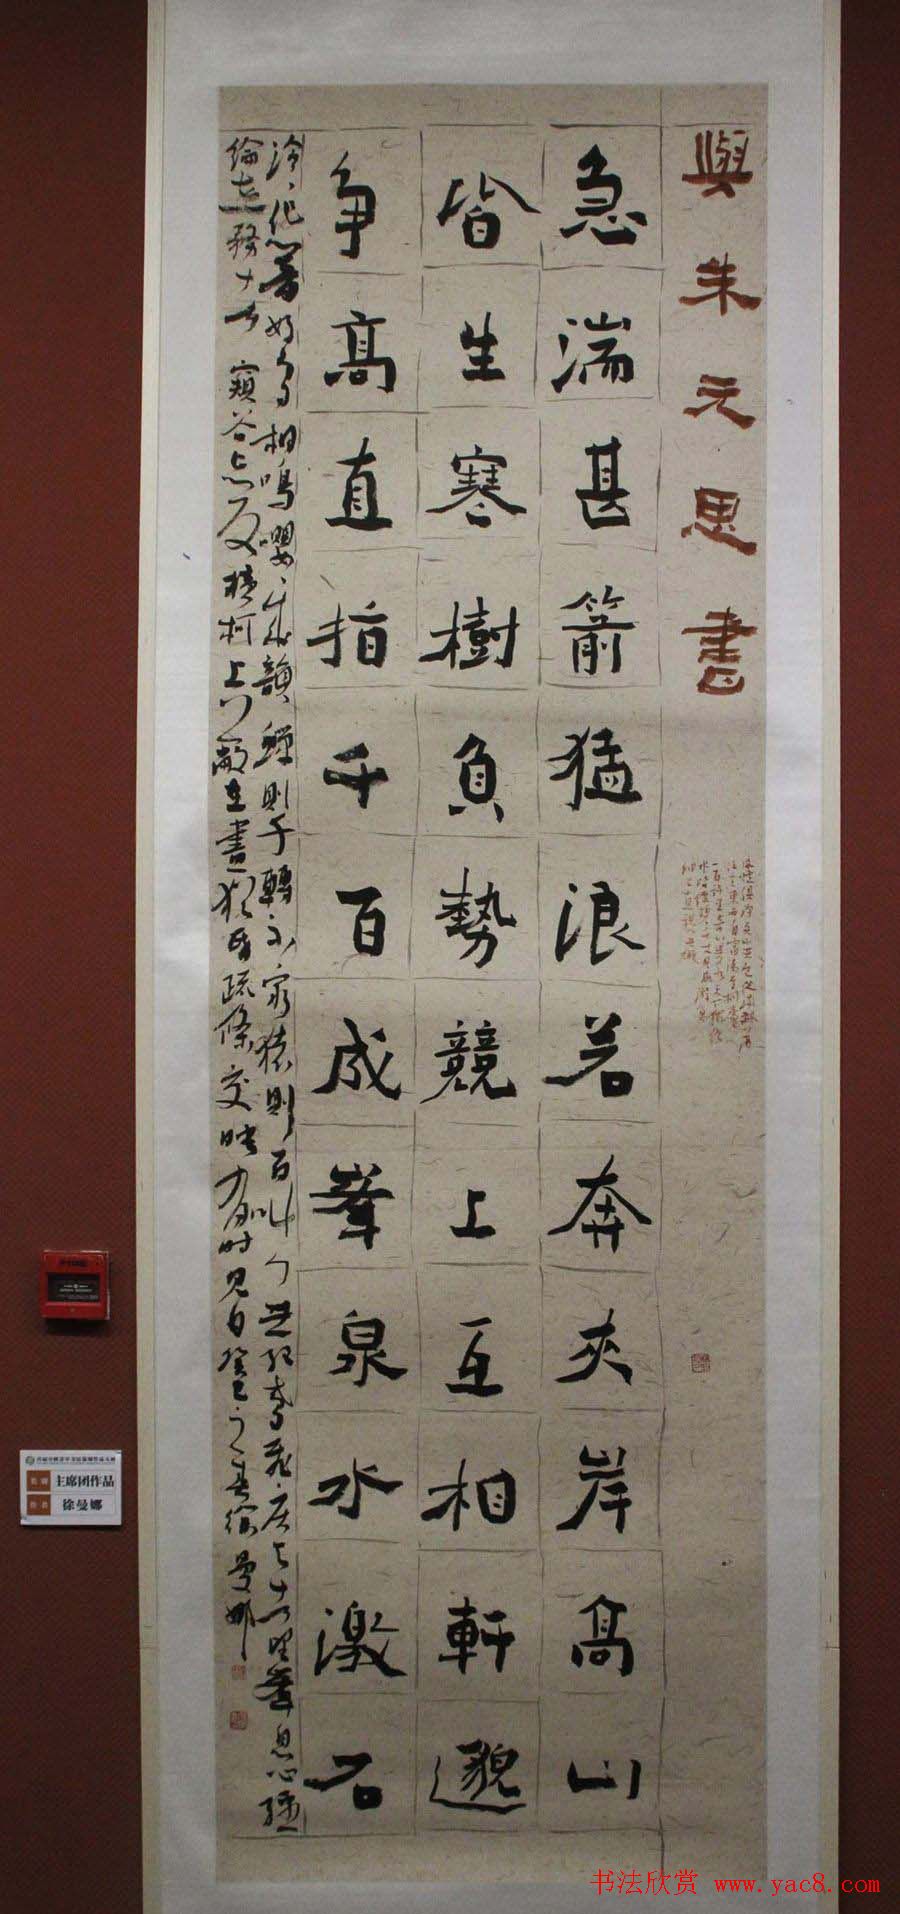 與朱元思書
急湍甚箭猛浪若奔夾岸高山
皆生寒樹負勢競上互相軒邈
争高直指千百成峯泉水激石
泠泠作響好鳥相鳴嚶嚶成韻蟬則千轉不窮猿則百叫無絕鳶飛戾天者望峯息心經
綸世務者窺谷忘反橫柯上蔽在晝猶昏疏條交映有時見日癸巳之春徐曼娜
主席团作品
徐曼娜
书法欣赏 www.yac8.com